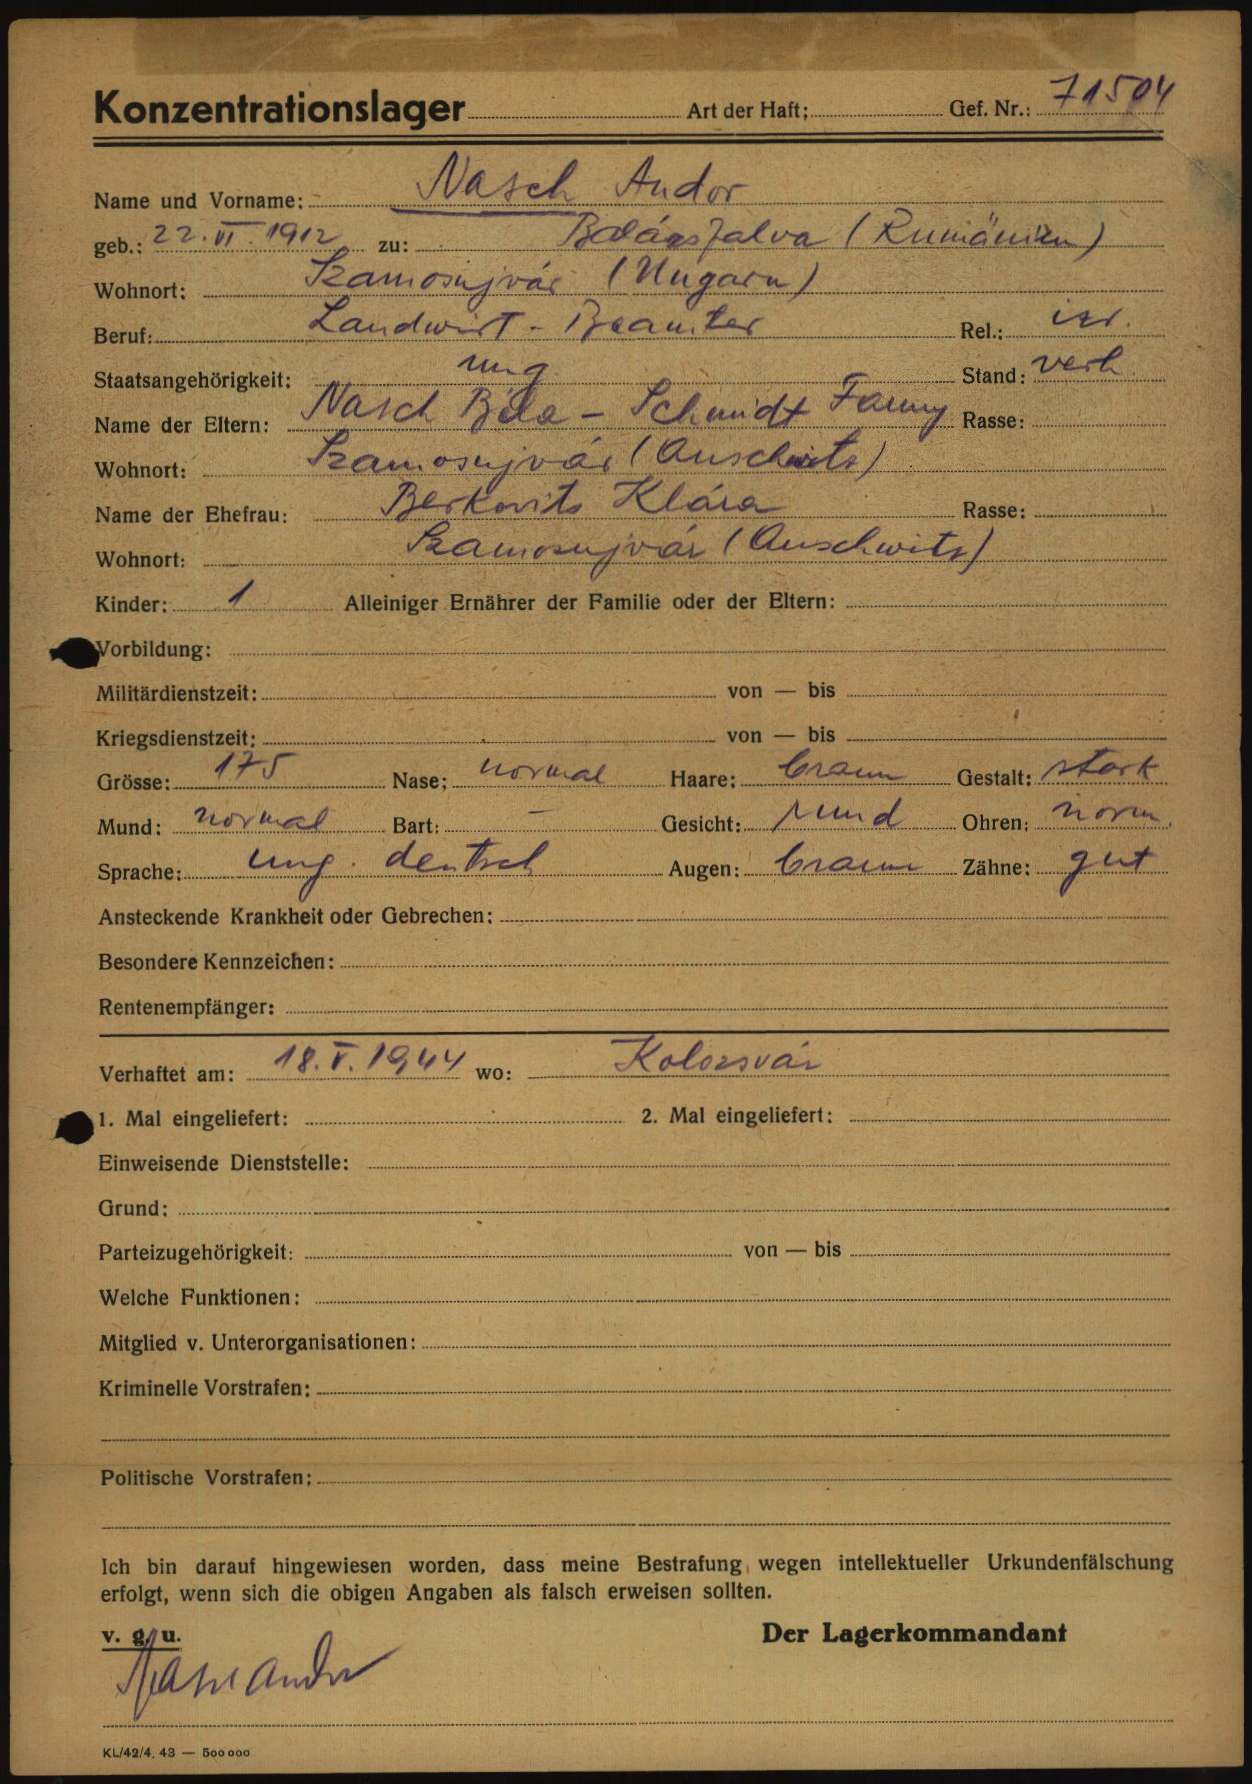 Konzentrationslager Art der Haft: Gef. Nr.: 71504
Name und Vorname: Nasch Andor
geb.: 22. VI. 1912 zu: Balázsfalva (Rumänien)
Wohnort: Szamosujvár (Ungarn)
Beruf: Landwirt - Beamter Rel.: isr.
Staatsangehörigkeit: ung Stand: verh
Name der Eltern: Nasch Béla - Schmidt Fanny Rasse:
Wohnort: Szamosujvár (Auschwits)
Name der Ehefrau: Berkovits Klára Rasse:
Wohnort: Szamosujvár (Auschwits)
Kinder: 1 Alleiniger Ernährer der Familie oder der Eltern:
Vorbildung:
Militärdienstzeit: von — bis
Kriegsdienstzeit: von — bis
Grösse: 175 Nase: normal Haare: braun Gestalt: stark
Mund: normal Bart: - Gesicht: rund Ohren: norm.
Sprache: ung. deutsch Augen: braun Zähne: gut
Ansteckende Krankheit oder Gebrechen:
Besondere Kennzeichen:
Rentenempfänger:
Verhaftet am: 18. V. 1944 wo: Kolozsvár
1. Mal eingeliefert: 2. Mal eingeliefert:
Einweisende Dienststelle:
Grund:
Parteizugehörigkeit: von — bis
Welche Funktionen:
Mitglied v. Unterorganisationen:
Kriminelle Vorstrafen:
Politische Vorstrafen:
Ich bin darauf hingewiesen worden, dass meine Bestrafung wegen intellektueller Urkundenfälschung
erfolgt, wenn sich die obigen Angaben als falsch erweisen sollten.
v. g. u. Der Lagerkommandant
Nasch Andor
KL/42/4. 43 — 500 000